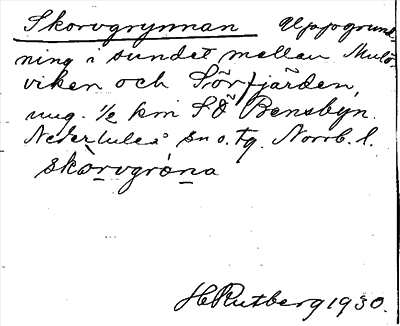 Skorvgrynnan Uppgrund-
ning i sundet mellan Mulö-
viken och Sörfjärden,
ung. ½ km SÖ Bensbyn.
Nederluleå sn o. tg. Norrb. l.
skòrvgróna
H Rutberg 1930.